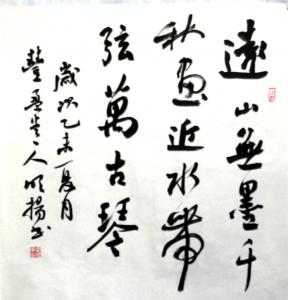 遠山無墨千
秋畫近水帶
弦萬古琴
歲次乙未夏月
豐
人
揚書